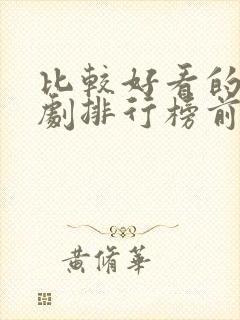 比較好看的
劇排行榜前
黃脩華